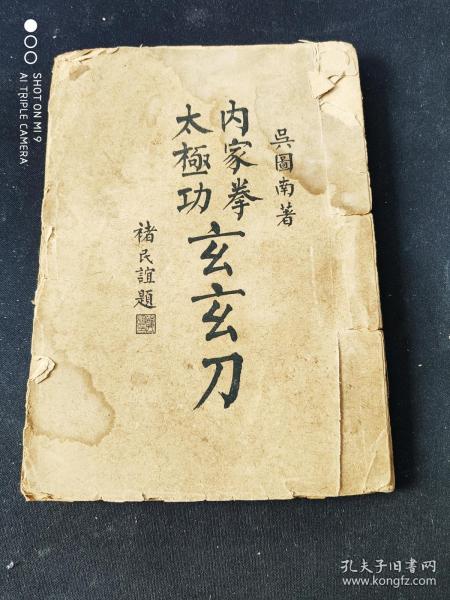 吳圖南著
內家拳
太極功
玄玄刀
褚民誼題
SHOT ON MI 9
AI TRIPLE CAMERA
孔夫子旧书网
www.kongfz.com